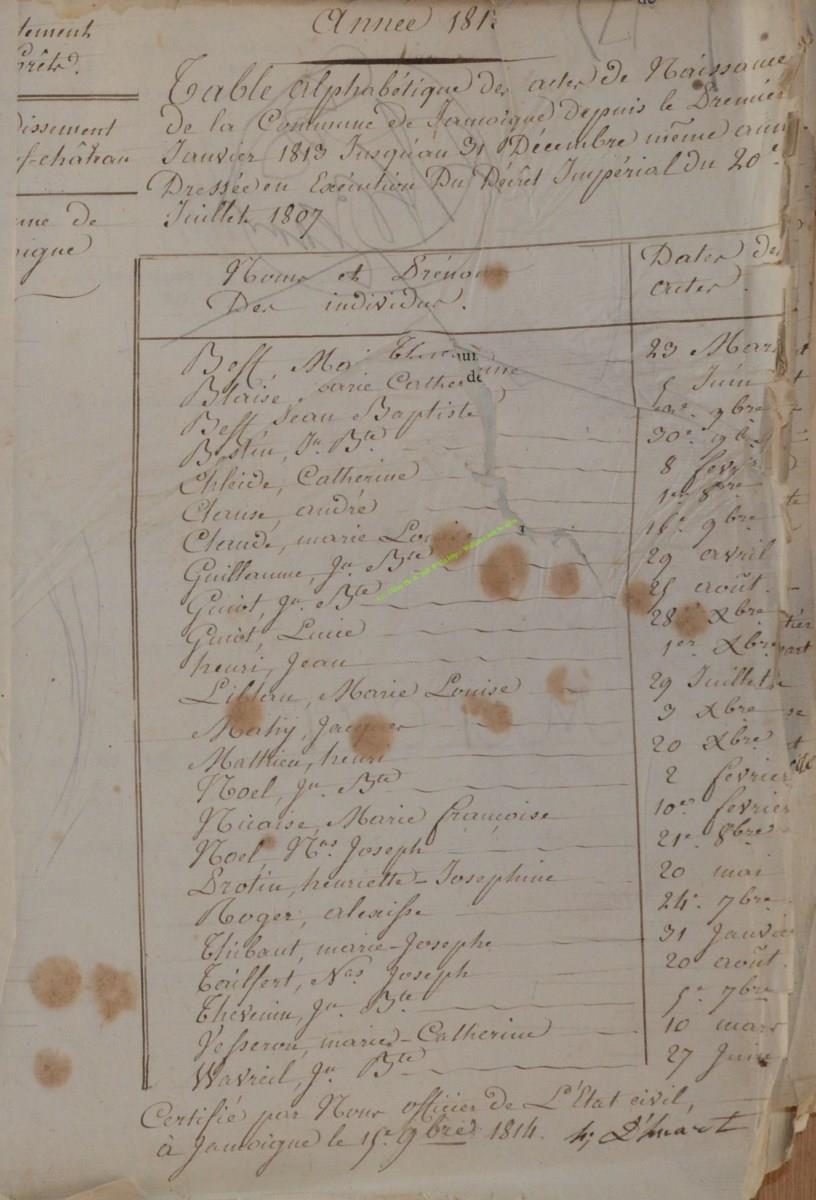 Année 181
Table alphabétique des actes de Naissance
de la Commune de Jamoigne depuis le Premier
Janvier 1813 Jusqu'au 31 Décembre même
Dressée en Exécution Du Décret Impérial du 20e
Juillet 1807
tement
dissement
f-château
une de
oigne
Noms et Prénoms
Des individus.
Dates des
actes.
Beff,
23 Mars
Blaise, Marie Catherine
5 Juin
Beff Jean Baptiste
9bre
Jn. Bte
30e 9b
Catherine
8 fevri
Clause, andré
1er 8bre
Claude, marie Louise
16e 9bre
Guillaume, Jn. Bte
29 avril
Guiot, Jn. Bte
25 août.
Guiot, Lucie
28 Xbre
henri, Jean
1er Xbre
Marie Louise
29 Juillet
Mahy, Jacques
3 Xbre
Mathieu, henri
20 Xbre
Noel, Jn. Bte
2 fevrier
Nicaise, Marie françoise
10e fevrier
Noel, Nas Joseph
21e 8bre
Protin, henriette-Josephine
20 mai
Roger, alexisse
24e 7bre
Thibaut, marie-Josephe
31 Janvie
Nas Joseph
20 août
Thevenin, Jn. Bte
5e 7bre
Vesseron, marie-Catherine
10 mars
Wavreil, Jn. Bte
27 Juin
Certifié par Nous officier de L'Etat civil,
à Jamoigne le 15e 9bre 1814.